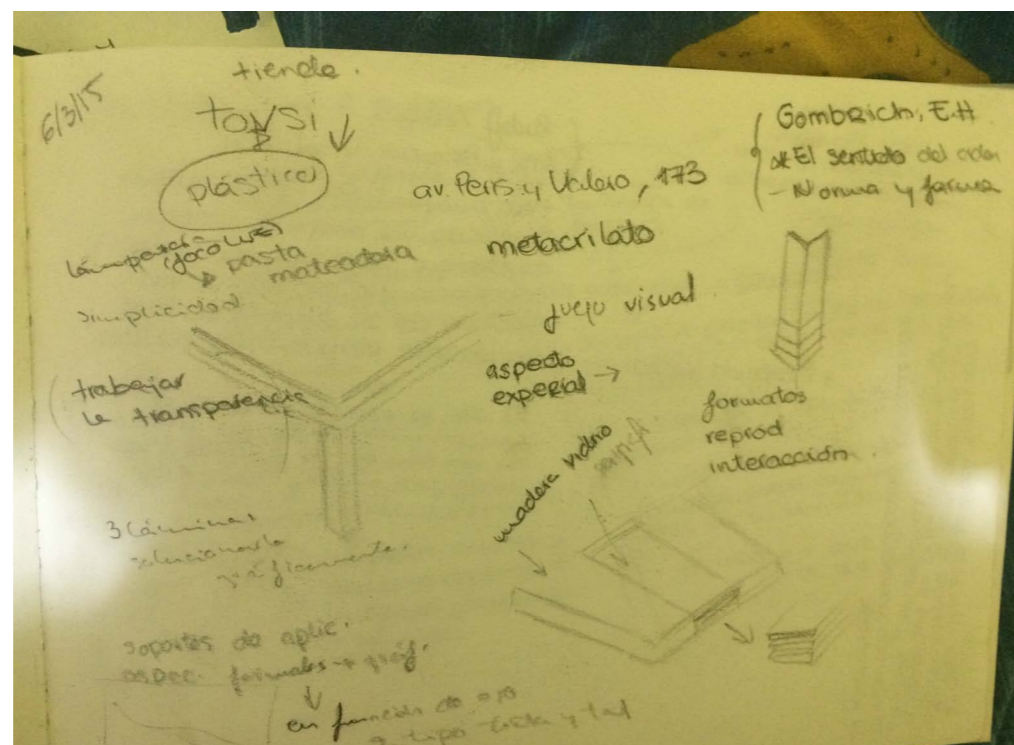 6/3/15
tienda.
plástico
av. Peris y Valero, 173
Gombrich, E.H
El sentido del orden
- Norma y forma
pasta
mateadora
metacrilato
simplicidad
juego visual
trabajar
la transparencia
aspecto
formatos
reprod
interacción
madera vidrio
3 láminas
solucionarla
gráficamente.
soportes de aplic.
aspec. formales
en función de
tipo